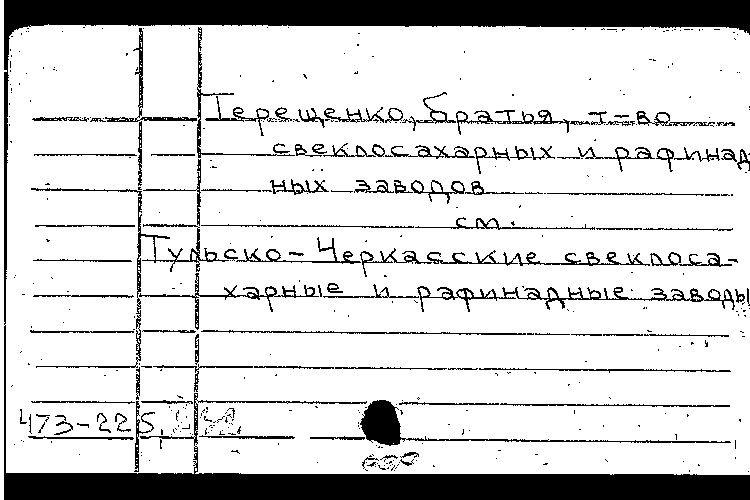 Терещенко, братья, т-во
свеклосахарных и рафинад
ных заводов
см.
Тульско-Черкасские свеклоса-
харные и рафинадные заводы
473-225.